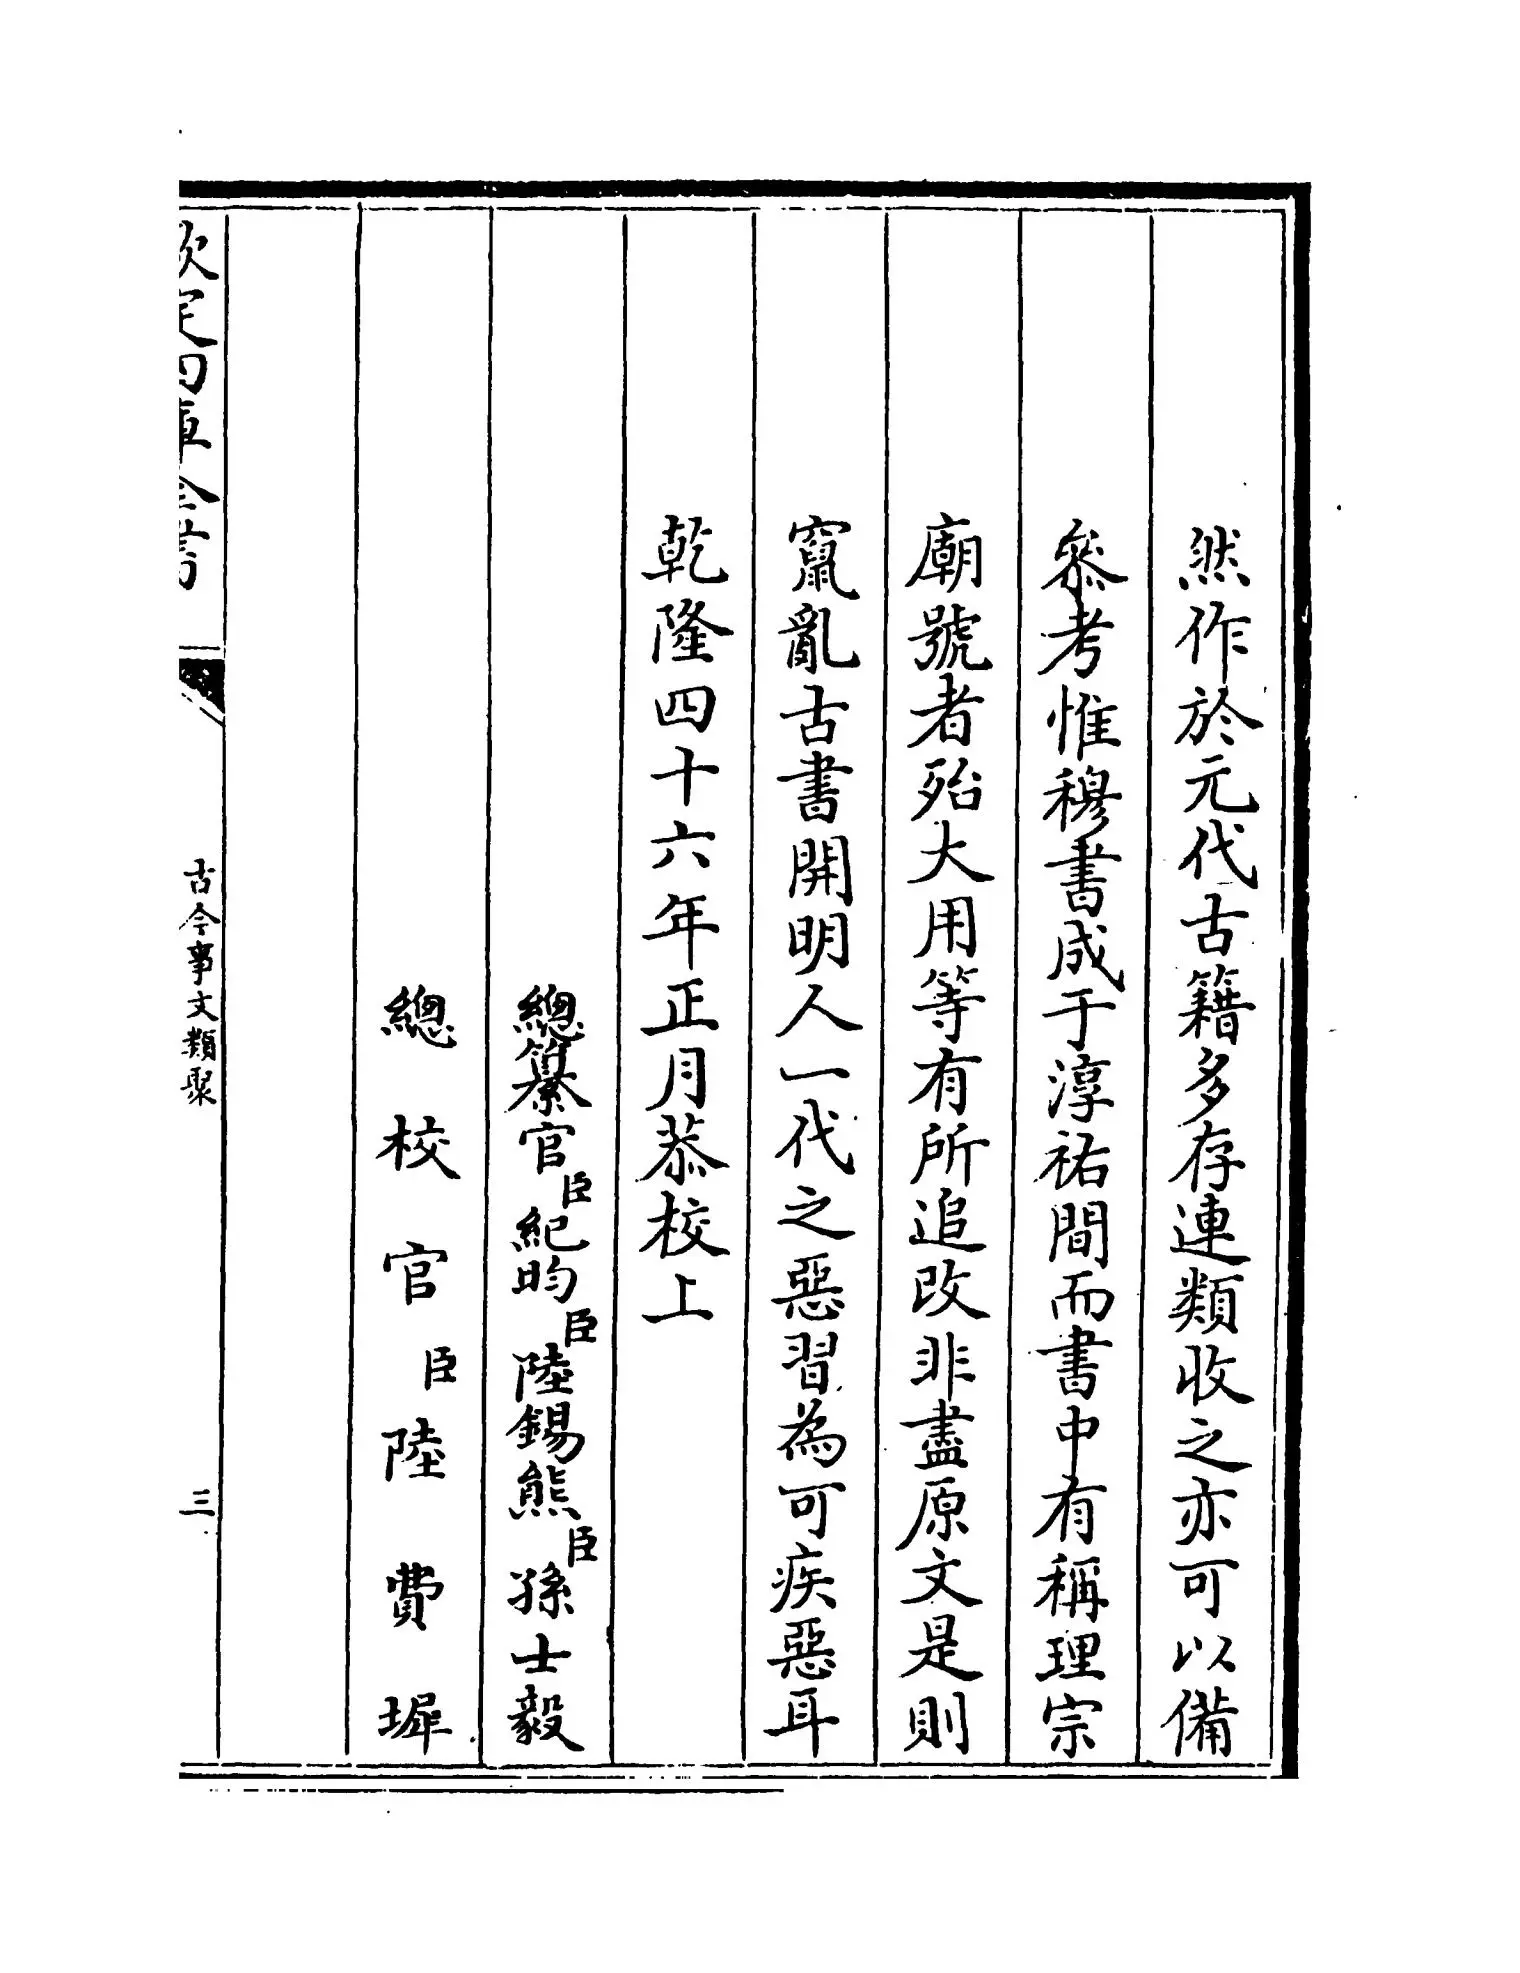 然作於元代古籍多存連類收之亦可以備
叅考惟穆書成于淳祐間而書中有稱理宗
廟號者殆大用等有所追改非盡原文是則
竄亂古書開明人一代之惡習為可疾惡耳
乾隆四十六年正月恭校上
總纂官臣紀昀臣陸錫熊臣孫士毅
總校官臣陸費墀
欽定四庫全書
古今事文類聚
三